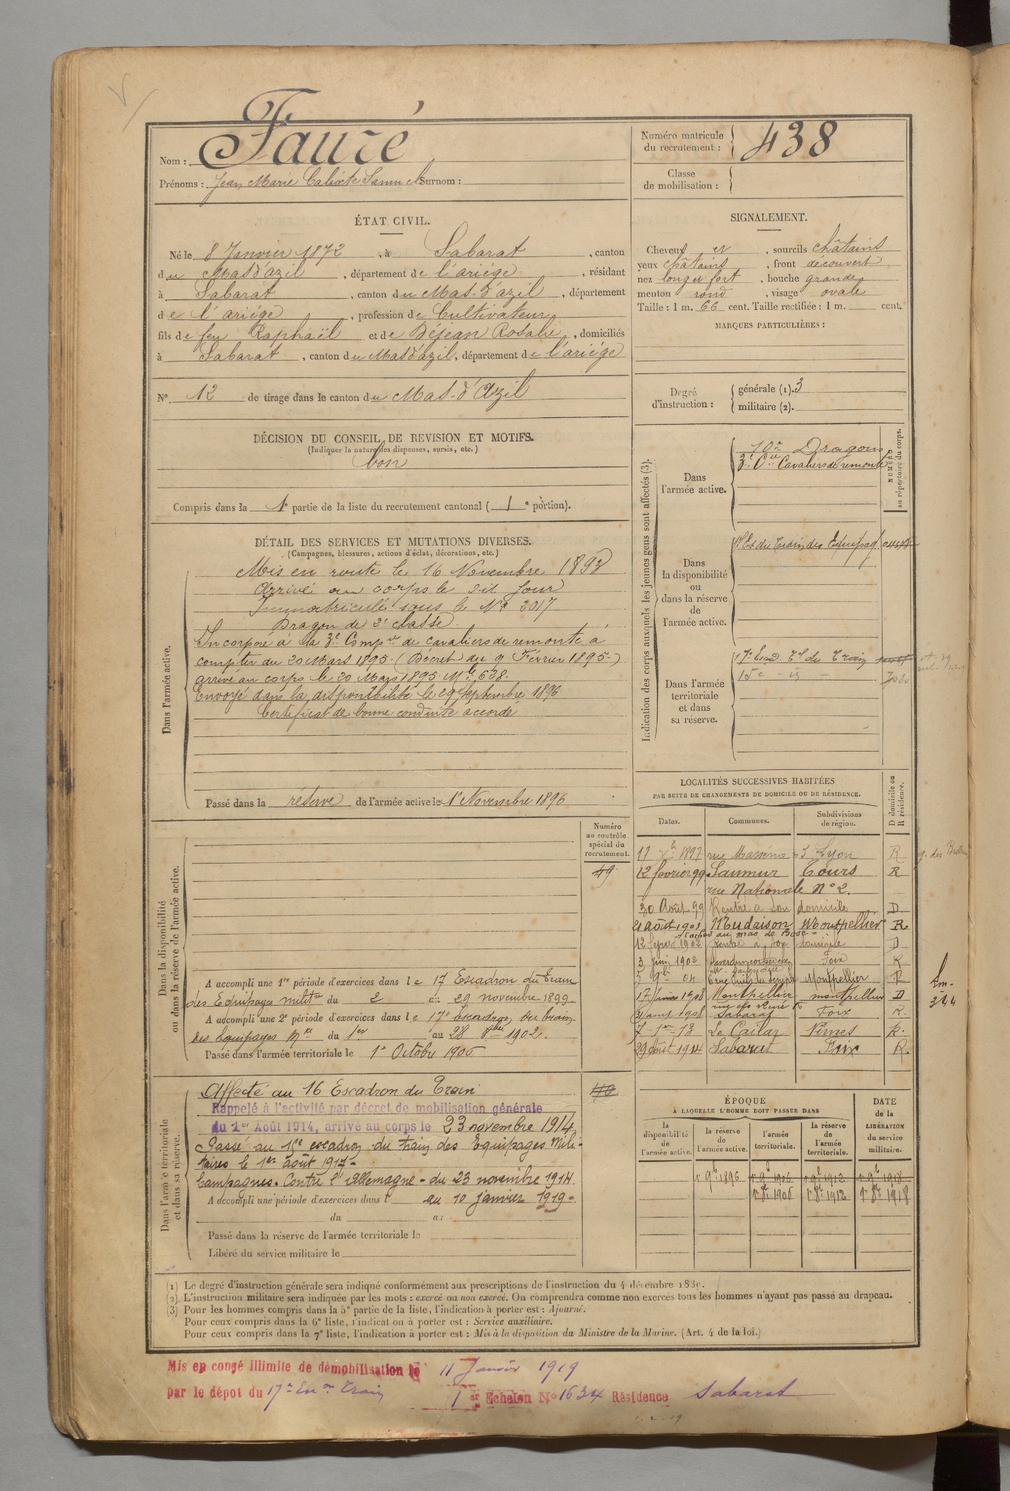 Nom : Fauré
Prénoms : Jean Marie Calixte Samuel Surnom :
Numéro matricule du recrutement : 438
Classe de mobilisation :
ÉTAT CIVIL.
Né le 8 Janvier 1872, à Sabarat, canton
du Masd'azil, département de l'ariège, résidant
à Sabarat, canton du Mas-d'azil, département
de l'ariège, profession de Cultivateur
fils de feu Raphaël et de Déjean Rosalie, domiciliés
à Sabarat, canton du Masd'azil, département de l'ariége
N° 12 de tirage dans le canton du Mas-d'Azil
SIGNALEMENT.
Cheveux et, sourcils châtains
yeux châtains, front découvert
nez long et fort, bouche grande
menton rond, visage ovale
Taille : 1 m. 66 cent. Taille rectifiée : 1 m. cent.
MARQUES PARTICULIÈRES :
Degré d'instruction :
générale (1). 3
militaire (2).
DÉCISION DU CONSEIL DE REVISION ET MOTIFS.
(Indiquer la nature des dispenses, sursis, etc.)
bon
Compris dans la 1e partie de la liste du recrutement cantonal ( 1e portion).
DÉTAIL DES SERVICES ET MUTATIONS DIVERSES.
(Campagnes, blessures, actions d'éclat, décorations, etc.)
Dans l'armée active.
Mis en route le 16 Novembre 1893
Arrivé au corps le dit jour
Immatriculé sous le N° 2017
Dragon de 2e classe
Incorporé à la 3e Compie de cavaliers de remonte à
compter du 20 Mars 1895 (Décret du 9 Février 1895)
arrivé au corps le 20 Mars 1895 Mle 528
Envoyé dans la disponibilité le 29 septembre 1896
Certificat de bonne conduite accordé
Passé dans la réserve de l'armée active le 1er Novembre 1896
Indication des corps auxquels les jeunes gens sont affectés (3).
NUMÉRO au répertoire du corps.
Dans l'armée active.
10e Dragons
3e Cie Cavaliers de remonte
Dans la disponibilité ou dans la réserve de l'armée active.
Dans l'armée territoriale et dans sa réserve.
LOCALITÉS SUCCESSIVES HABITÉES
PAR SUITE DE CHANGEMENTS DE DOMICILE OU DE RÉSIDENCE.
Dates. Communes. Subdivisions de région. D domicile ou R résidence.
1897 rue Masséna 63 Lyon R
12 février 99 Saumur Tours R
rue Nationale N° 2.
30 Août 99 Rentré à son domicile D
21 août 1901 Mudaison Montpellier R
Foix R
Montpellier R
1908 Montpellier montpellier D
1908 Sabarat Foix R
13 Le Cailar Nimes R.
29 août 1914 Sabarat Foix R.
Numéro au contrôle spécial du recrutement.
49
Dans la disponibilité ou dans la réserve de l'armée active.
A accompli une 1re période d'exercices dans le 17 Escadron du train
des Equipages milit. du 2 au 29 novembre 1899
A accompli une 2e période d'exercices dans le 17e escadron du train
des Equipages du 1er au 28 1902.
Passé dans l'armée territoriale le 1er Octobre 1906
Dans l'armée territoriale et dans sa réserve.
Affecté au 16 Escadron du Train
Rappelé à l'activité par décret de mobilisation générale
du 1er Août 1914, arrivé au corps le 23 novembre 1914
Passé au escadron du train des Equipages Mili-
taires le 1er août 1917-
Campagnes. Contre l'allemagne - du 23 novembre 1914
A accompli une période d'exercices dans l au 10 janvier 1919-
du au
Passé dans la réserve de l'armée territoriale le
Libéré du service militaire le
ÉPOQUE
À LAQUELLE L'HOMME DOIT PASSER DANS
la disponibilité de l'armée active. la réserve de l'armée active. l'armée territoriale. la réserve de l'armée territoriale.
DATE de la LIBÉRATION du service militaire.
(1) Le degré d'instruction générale sera indiqué conformément aux prescriptions de l'instruction du 4 décembre 1889.
(2) L'instruction militaire sera indiquée par les mots : exercé ou non exercé. On comprendra comme non exercés tous les hommes n'ayant pas passé au drapeau.
(3) Pour les hommes compris dans la 5e partie de la liste, l'indication à porter est : Ajourné.
Pour ceux compris dans la 6e liste, l'indication à porter est : Service auxiliaire.
Pour ceux compris dans la 7e liste, l'indication à porter est : Mis à la disposition du Ministre de la Marine. (Art. 4 de la loi.)
Mis en congé illimité de démobilisation le 11 Janvier 1919
par le dépôt du 17e Train 1er Echelon N° 1634 Résidence Sabarat